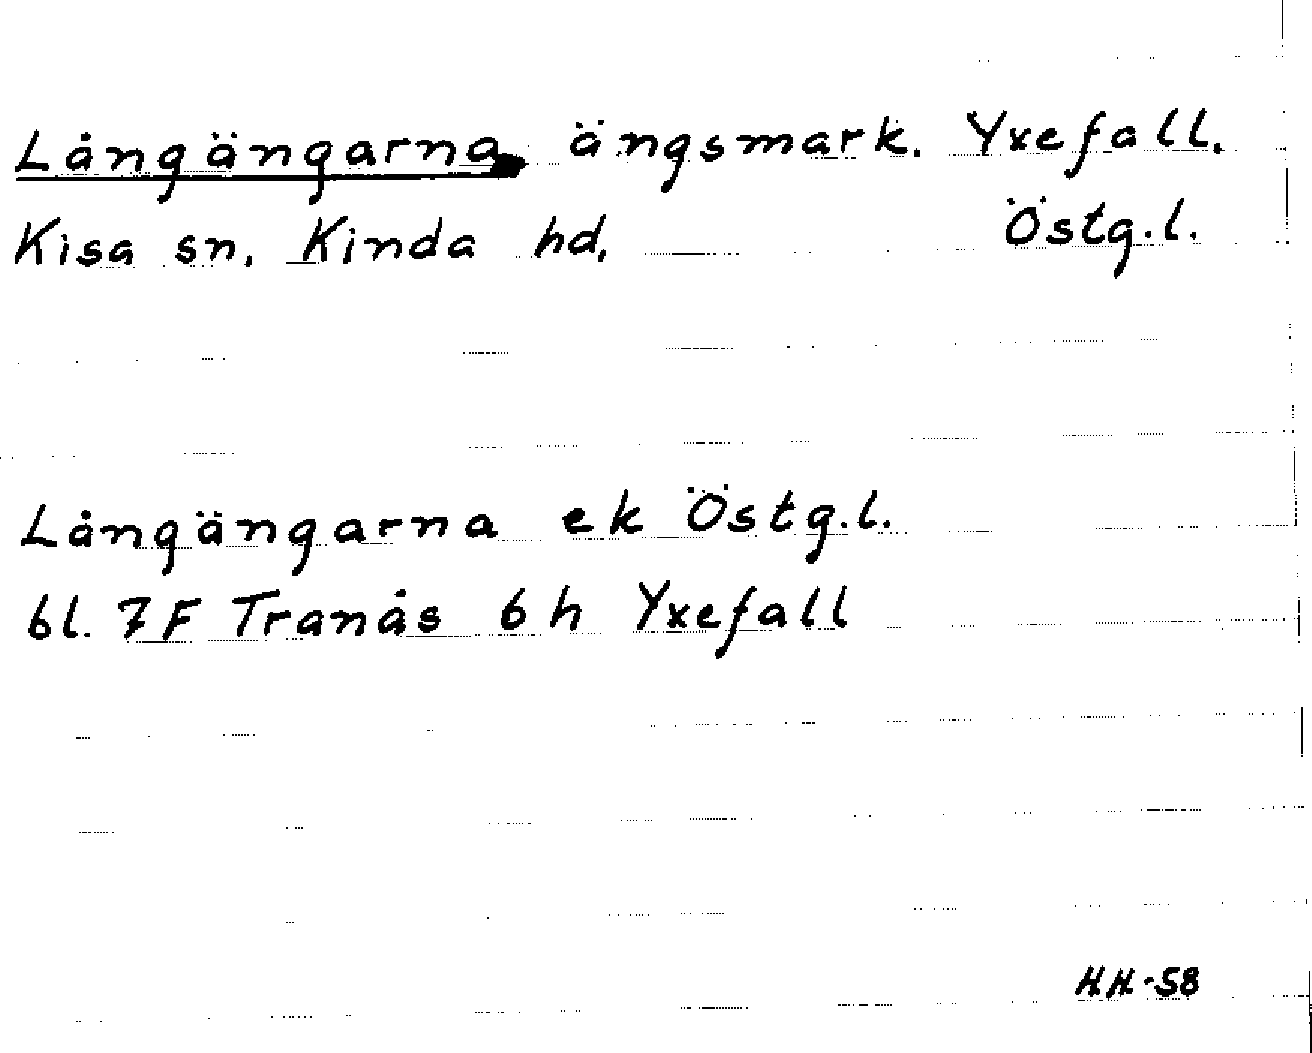 Långängarna ängsmark. Yxefall.
Kisa sn. Kinda hd. Östg.l.
Långängarna ek Östg.l.
bl. 7F Tranås 6 h Yxefall
H.H.-58